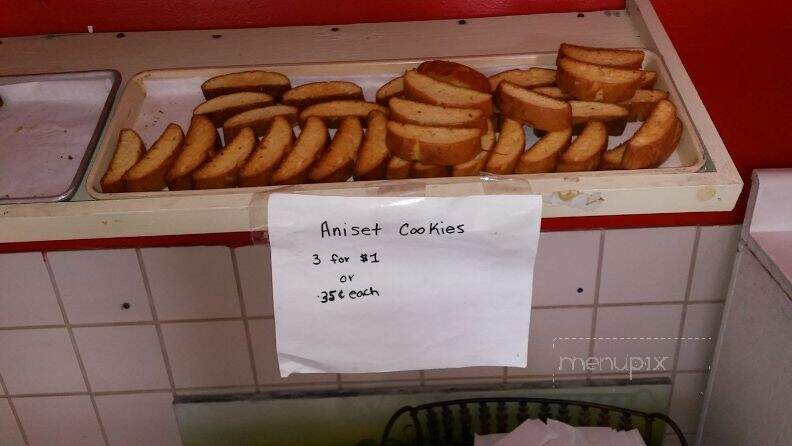 Aniset Cookies
3 for $1
or
.35¢ each
menupix